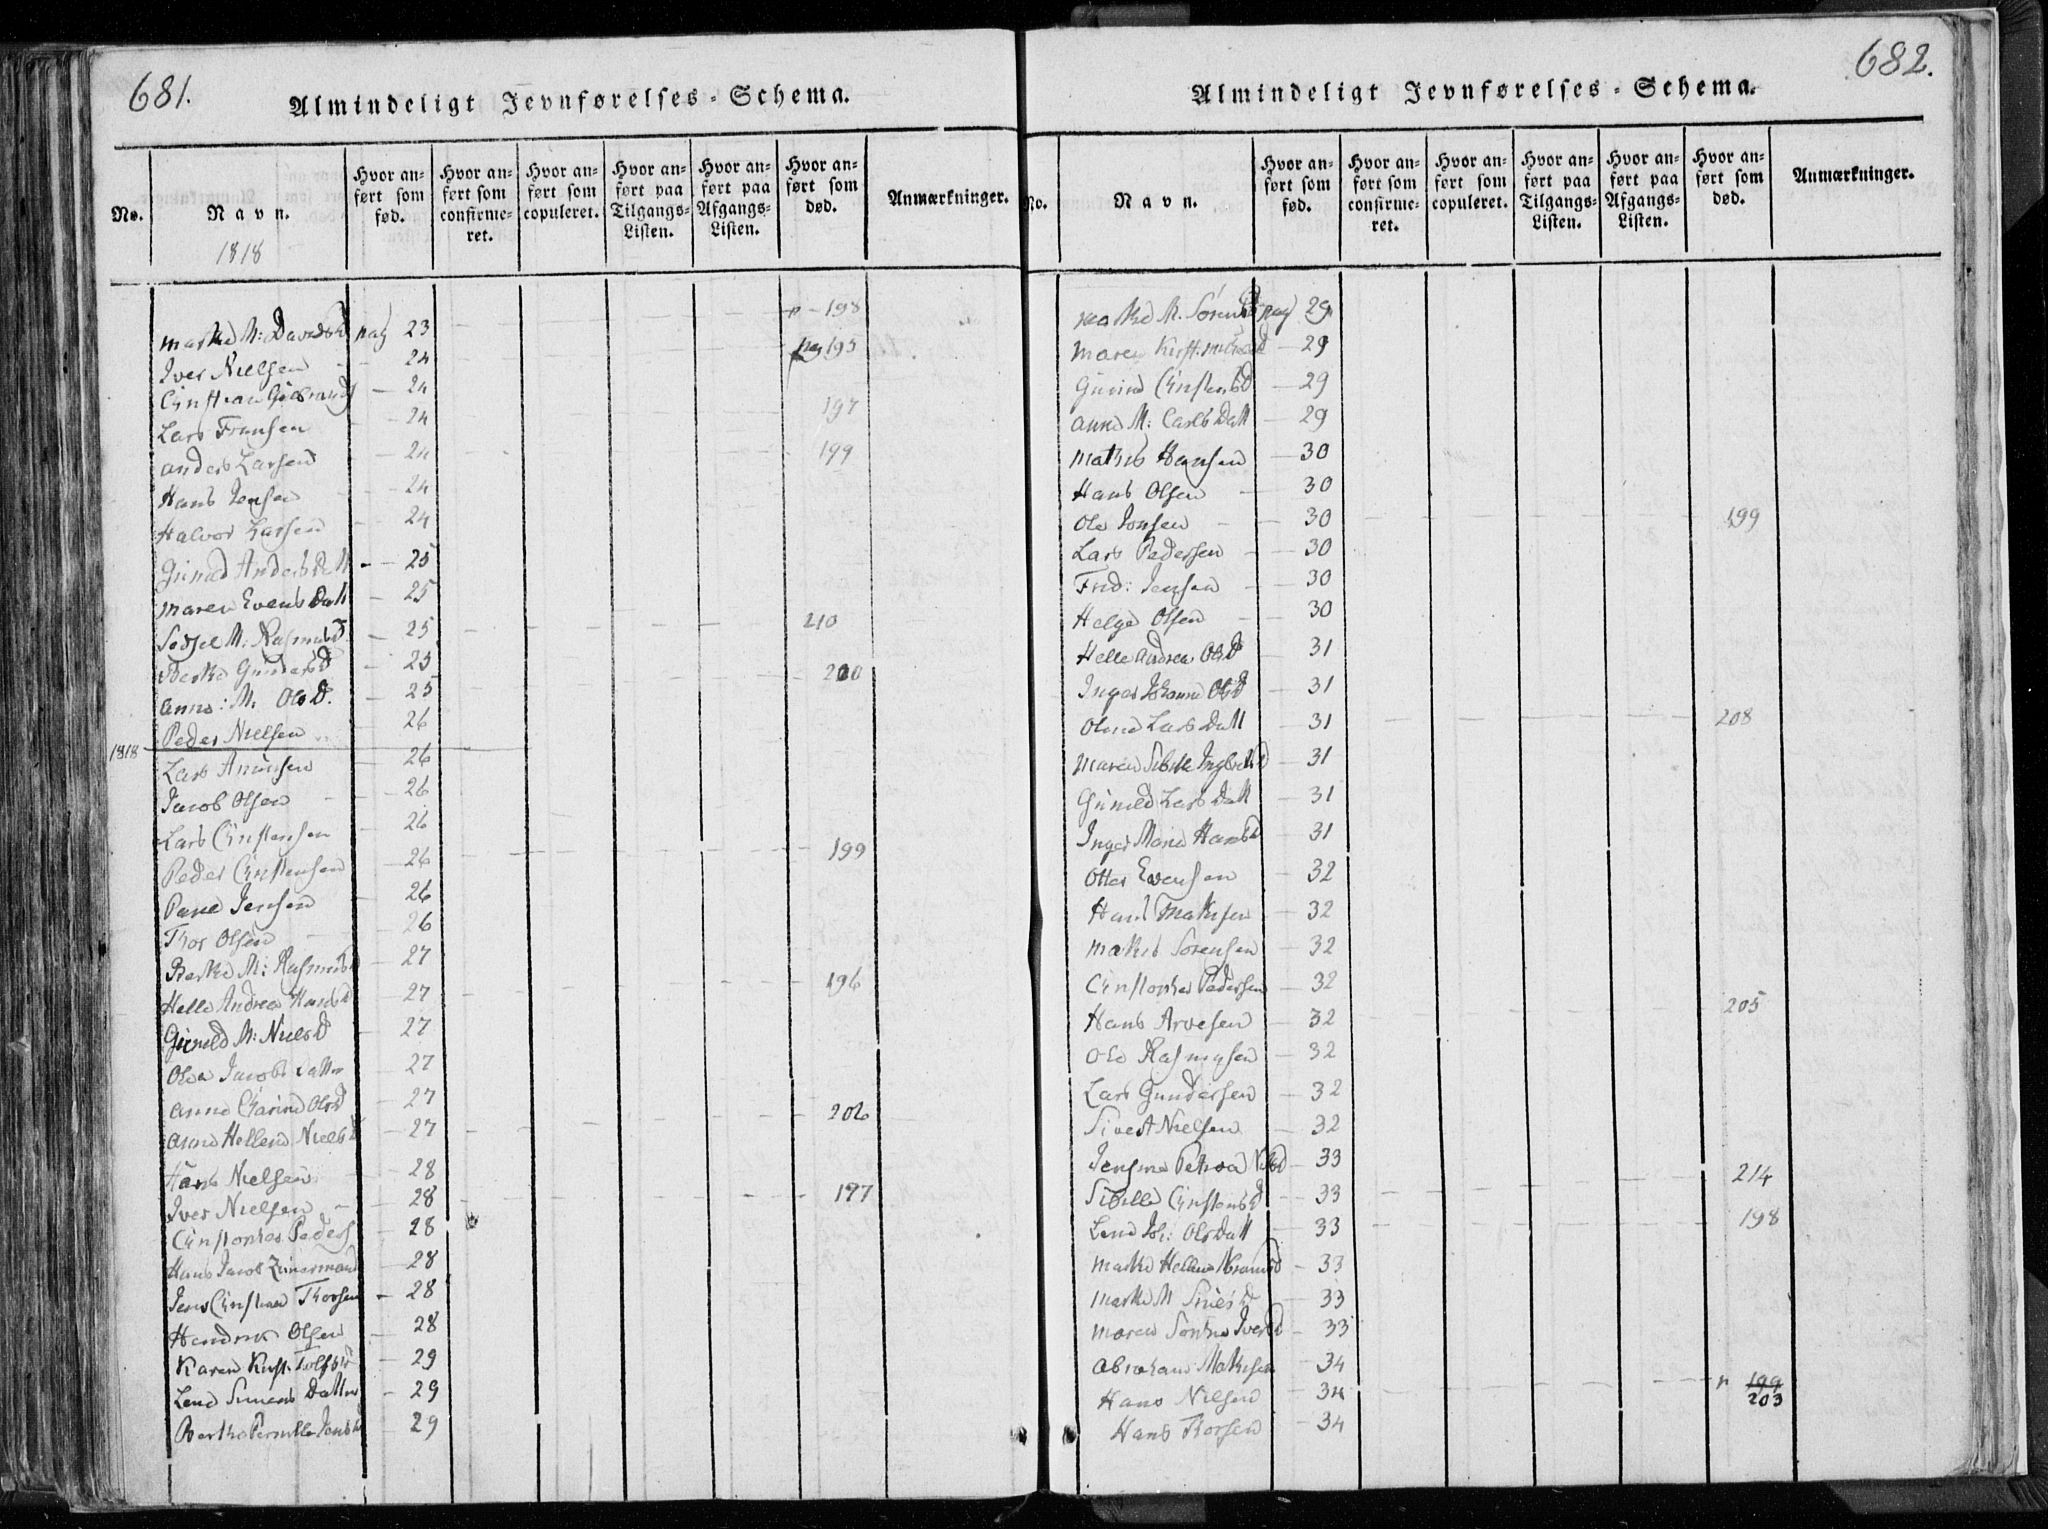 681.
Almindeligt Jevnførelses-Schema.
No.
Navn.
Hvor an-
ført som
fød.
Hvor an-
ført som
confirme-
ret.
Hvor an-
ført som
copuleret.
Hvor an-
ført paa
Tilgangs-
Listen.
Hvor an-
ført paa
Afgangs-
Listen.
Hvor an-
ført som
død.
Anmærkninger.
1818
Marthe M: Davidsd pag 23 p 198
Iver Nielsen 24 pag 195
Christian 24
Lars Fransen 24 197
Anders Larsen 24 199
Hans Jensen 24
Halvor Larsen 24
Guned Anders Datt 25
Maren Evens Datt 25
Sidsel M: Rasmusd 25 210
Berthe Gundersd 25 200
Anne: M. Olsd. 25
Peder Nielsen 26
1818
Lars Amunsen 26
Jacob Olsen 26
Lars Christensen 26
Peder Christensen 26 199
Jensen 26
Thor Olsen 26
Berthe M: Rasmusd 27
Helle Andrea Hansd 27 196
Guneld M: Nielsd 27
Olea Jacobs Datter 27
Anne Charine Olsd 27
Anne Hellene Nielsd 27 206
Hans Nielsen 28
Iver Nielsen 28 197
Christopher Peders 28
Hans Jacob Zimermand 28
Jens Christian Thorsen 28
Hendrik Olsen 28
Karen Kirst. 29
Lene Simens Datter 29
Berthe Pernille Jensd 29
682.
Almindeligt Jevnførelses-Schema.
No.
Navn.
Hvor an-
ført som
fød.
Hvor an-
ført som
confirme-
ret.
Hvor an-
ført som
copuleret.
Hvor an-
ført paa
Tilgangs-
Listen.
Hvor an-
ført paa
Afgangs-
Listen.
Hvor an-
ført som
død.
Anmærkninger.
Marthe M. Sörensd pag 29
Maren Kirst. 29
Gurine Christensd 29
Anne M: Carls Datt 29
Mathis Hansen 30
Hans Olsen 30
Ole Jonsen 30 199
Lars Pedersen 30
Frid: Jensen 30
Helge Olsen 30
Helle Andrea Olsd 31
Inger Johanne Olsd 31
Oline Lars Datt 31 208
Maren Sibille Ingbretsd 31
Guneld Lars Datt 31
Inger Marie Hansd 31
Otter Evensen 32
Hans Mathisen 32
Mathis Sorensen 32
Christopher Pedersen 32
Hans Arvesen 32 205
Ole Rasmusen 32
Lars Gundersen 32
Sivert Nielsen 32
Jensine Petrea 33
Sibille Christensd 33 214
Lene Joh: Ols Datt 33 198
Marthe Hellene 33
Marthe M 33
Maren Sophie Iversd 33
Abraham Mathisen 34
Hans Nilsen 34 p 199
203
Hans Thorsen 34